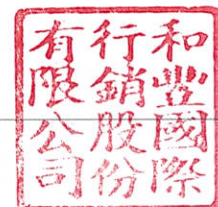 和豐國際
行銷股份
有限公司